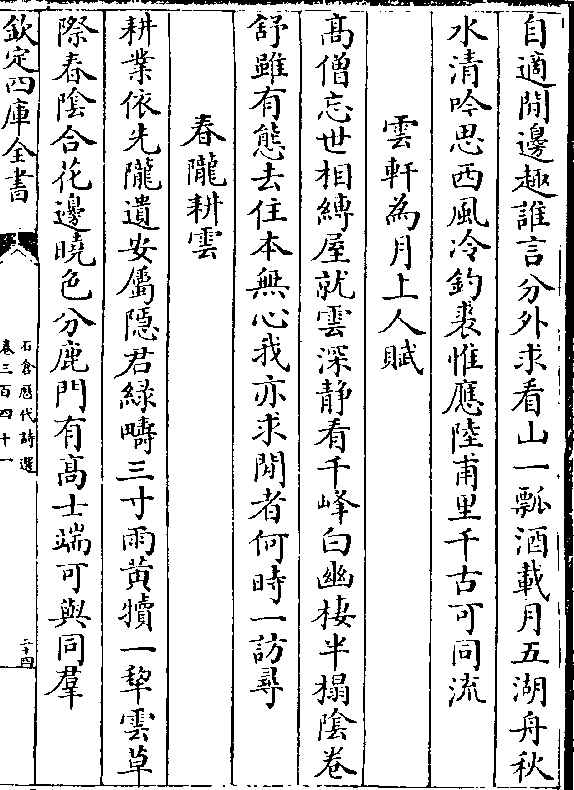 自適閒邊趣誰言分外求看山一瓢酒載月五湖舟秋
水清吟思西風冷釣裘惟應陸甫里千古可同流
雲軒為月上人賦
髙僧忘世相縳屋就雲深静看千峰白幽棲半榻隂卷
舒雖有態去住本無心我亦求閒者何時一訪尋
春隴耕雲
耕業依先隴遺安屬隠君緑疇三寸雨黄犢一犂雲草
際春隂合花邊曉色分鹿門有髙士端可與同羣
欽定四庫全書
石倉厯代詩選
卷三百四十一
二十四